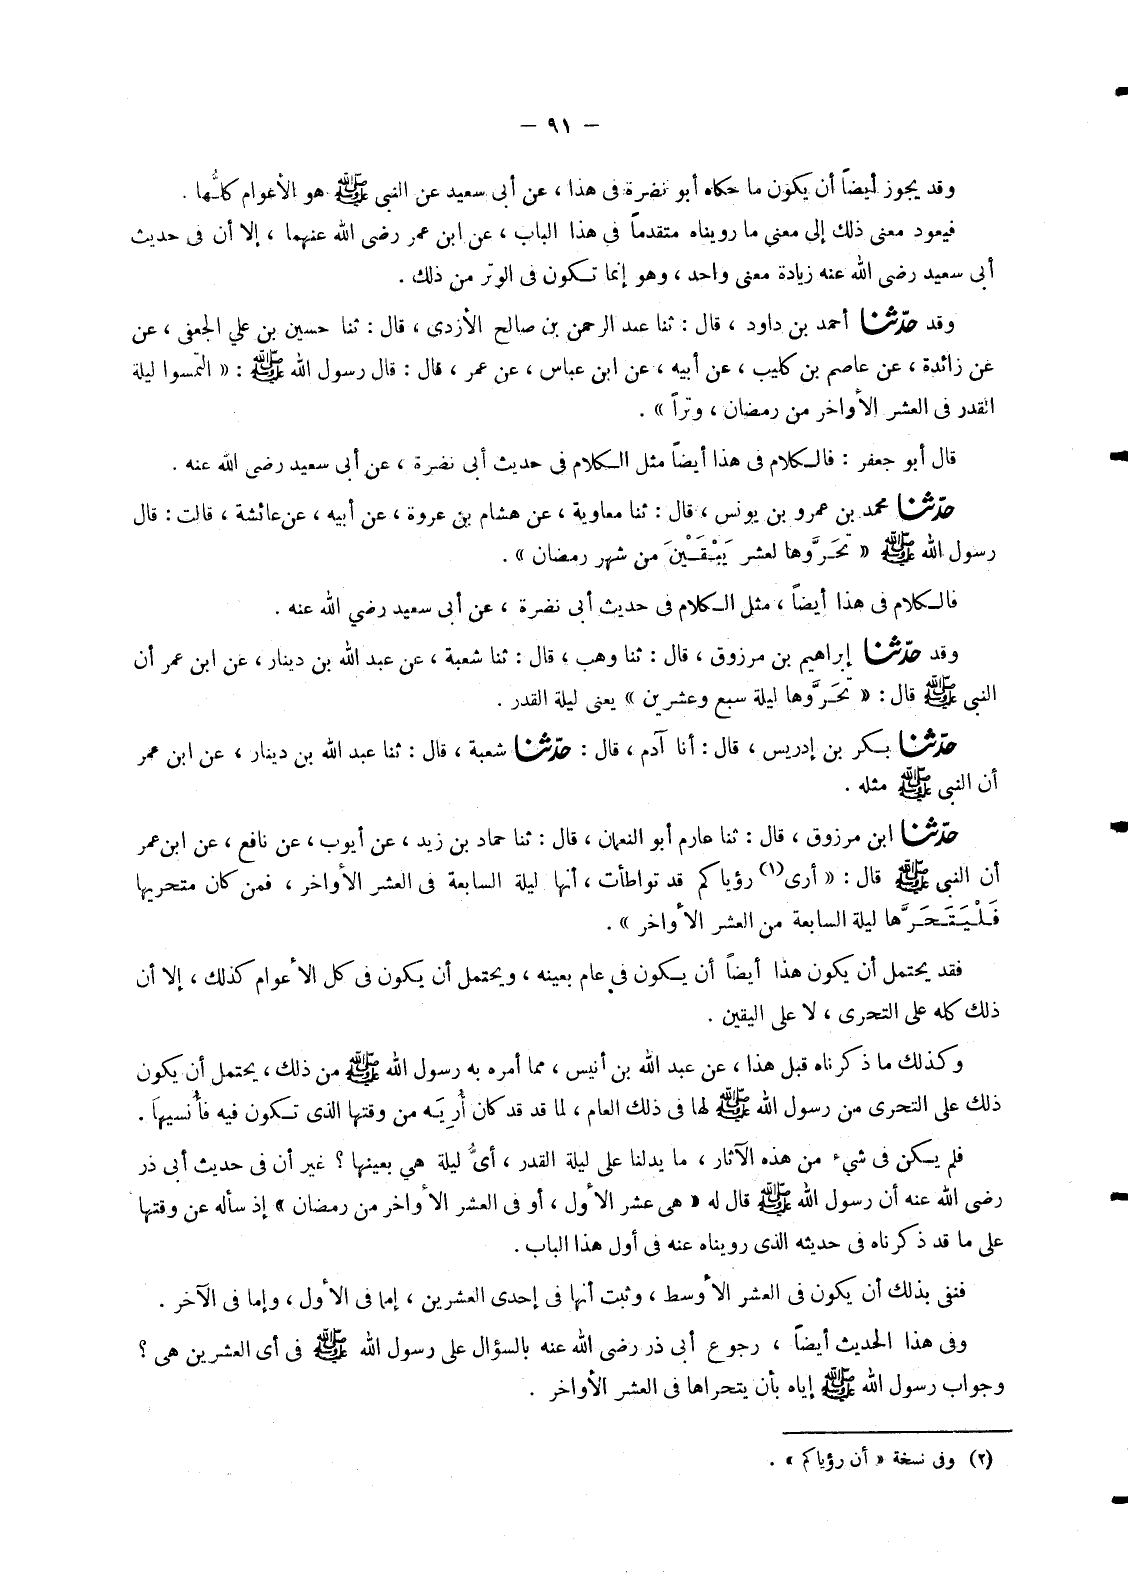 — ٩١ —
وقد يجوز أيضاً أن يكون ما حكاه أبو نضرة فى هذا ، عن أبى سعيد عن النبى ﷺ هو الأعوام كلُّها .
فيعود معنى ذلك إلى معنى ما رويناه متقدماً فى هذا الباب ، عن ابن عمر رضى الله عنهما ، إلا أن فى حديث
أبى سعيد رضى الله عنه زيادة معنى واحد ، وهو إنما تكون فى الوتر من ذلك .
وقد حدّثنا أحمد بن داود ، قال : ثنا عبد الرحمن بن صالح الأزدى ، قال : ثنا حسين بن علي الجعفى ، عن
عن زائدة ، عن عاصم بن كليب ، عن أبيه ، عن ابن عباس ، عن عمر ، قال : قال رسول الله ﷺ : « التمسوا ليلة
القدر فى العشر الأواخر من رمضان ، وتراً » .
قال أبو جعفر : فالكلام فى هذا أيضاً مثل الكلام فى حديث أبى نضرة ، عن أبى سعيد رضى الله عنه .
حدّثنا محمد بن عمرو بن يونس ، قال : ثنا معاوية ، عن هشام بن عروة ، عن أبيه ، عن عائشة ، قالت : قال
رسول الله ﷺ « تَحَرَّوها لعشر يَبْقَيْنَ من شهر رمضان » .
فالكلام فى هذا أيضاً ، مثل الكلام فى حديث أبى نضرة ، عن أبى سعيد رضي الله عنه .
وقد حدّثنا إبراهيم بن مرزوق ، قال : ثنا وهب ، قال : ثنا شعبة ، عن عبد الله بن دينار ، عن ابن عمر أن
النبى ﷺ قال : « تَحَرَّوها ليلة سبع وعشرين » يعنى ليلة القدر .
حدّثنا بكر بن إدريس ، قال : أنا آدم ، قال : حدّثنا شعبة ، قال : ثنا عبد الله بن دينار ، عن ابن عمر
أن النبى ﷺ مثله .
حدّثنا ابن مرزوق ، قال : ثنا عارم أبو النعمان ، قال : ثنا حماد بن زيد ، عن أيوب ، عن نافع ، عن ابن عمر
أن النبى ﷺ قال : « أرى(١) رؤياكم قد تواطأت ، أنها ليلة السابعة فى العشر الأواخر ، فمن كان متحريها
فَلْيَتَحَرَّها ليلة السابعة من العشر الأواخر » .
فقد يحتمل أن يكون هذا أيضاً أن يكون فى عام بعينه ، ويحتمل أن يكون فى كل الأعوام كذلك ، إلا أن
ذلك كله على التحرى ، لا على اليقين .
وكذلك ما ذكرناه قبل هذا ، عن عبد الله بن أنيس ، مما أمره به رسول الله ﷺ من ذلك ، يحتمل أن يكون
ذلك على التحرى من رسول الله ﷺ لها فى ذلك العام ، لما قد قد كان أُرِيَه من وقتها الذى تكون فيه فأُنسيها .
فلم يكن فى شيء من هذه الآثار ، ما يدلنا على ليلة القدر ، أىُّ ليلة هي بعينها ؟ غير أن فى حديث أبى ذر
رضى الله عنه أن رسول الله ﷺ قال له « هى عشر الأول ، أو فى العشر الأواخر من رمضان » إذ سأله عن وقتها
على ما قد ذكرناه فى حديثه الذى رويناه عنه فى أول هذا الباب .
فنفى بذلك أن يكون فى العشر الأوسط ، وثبت أنها فى إحدى العشرين ، إما فى الأول ، وإما فى الآخر .
وفى هذا الحديث أيضاً ، رجوع أبى ذر رضى الله عنه بالسؤال على رسول الله ﷺ فى أى العشرين هى ؟
وجواب رسول الله ﷺ إياه بأن يتحراها فى العشر الأواخر .
(٢) وفى نسخة « أن رؤياكم » .